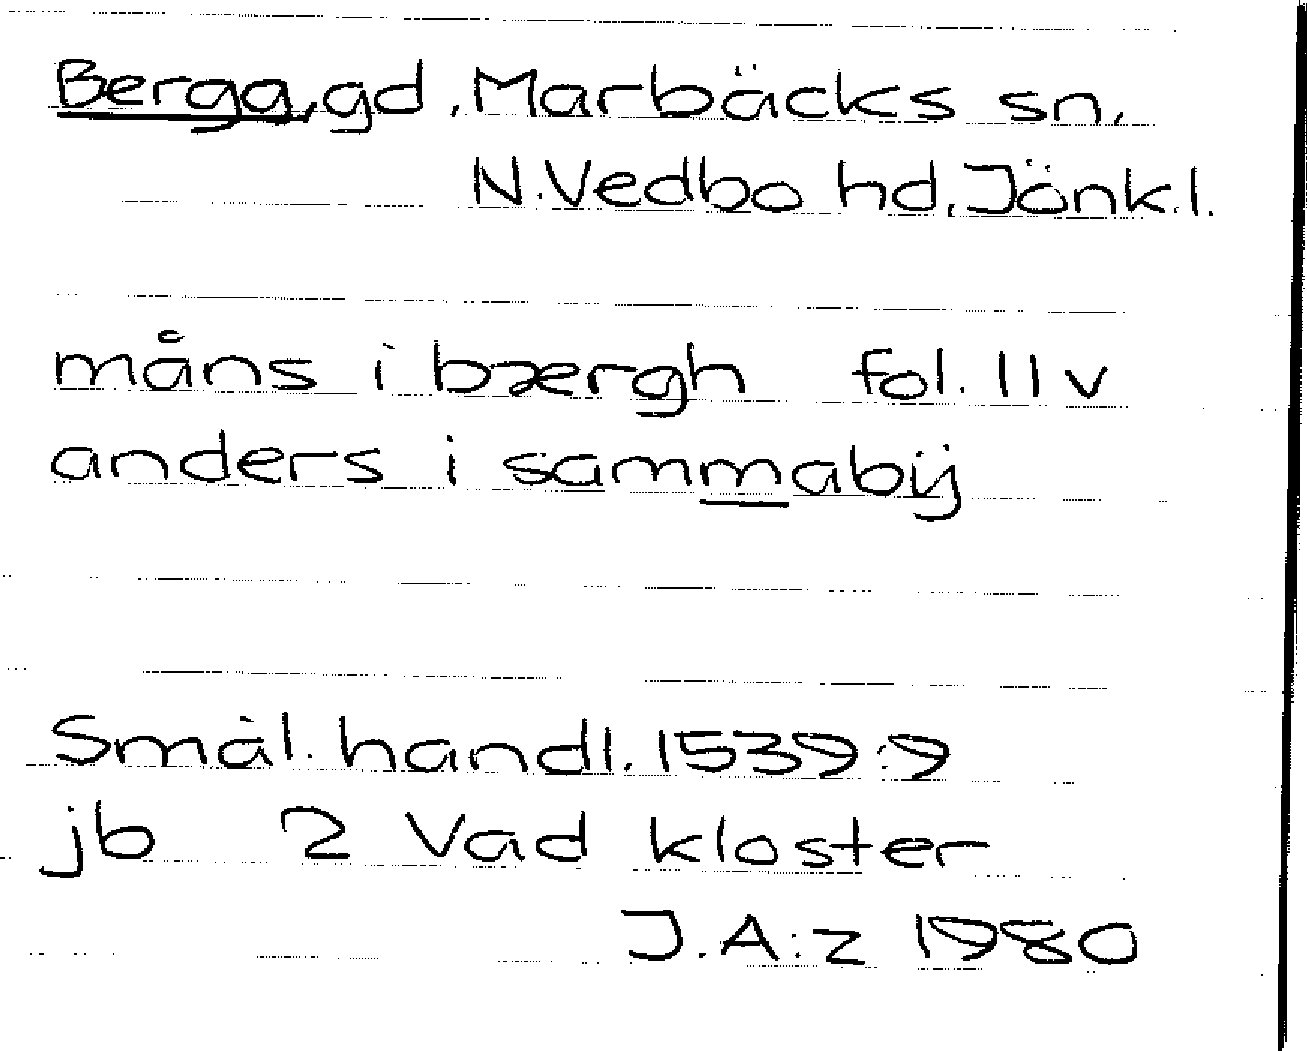 Berga, gd, Marbäcks sn,
N. Vedbo hd, Jönk.l.
måns i bærgh fol. 11 v
anders i sammabÿ
Smål. handl. 1539:9
jb 2 Vad kloster
J.A:z 1980